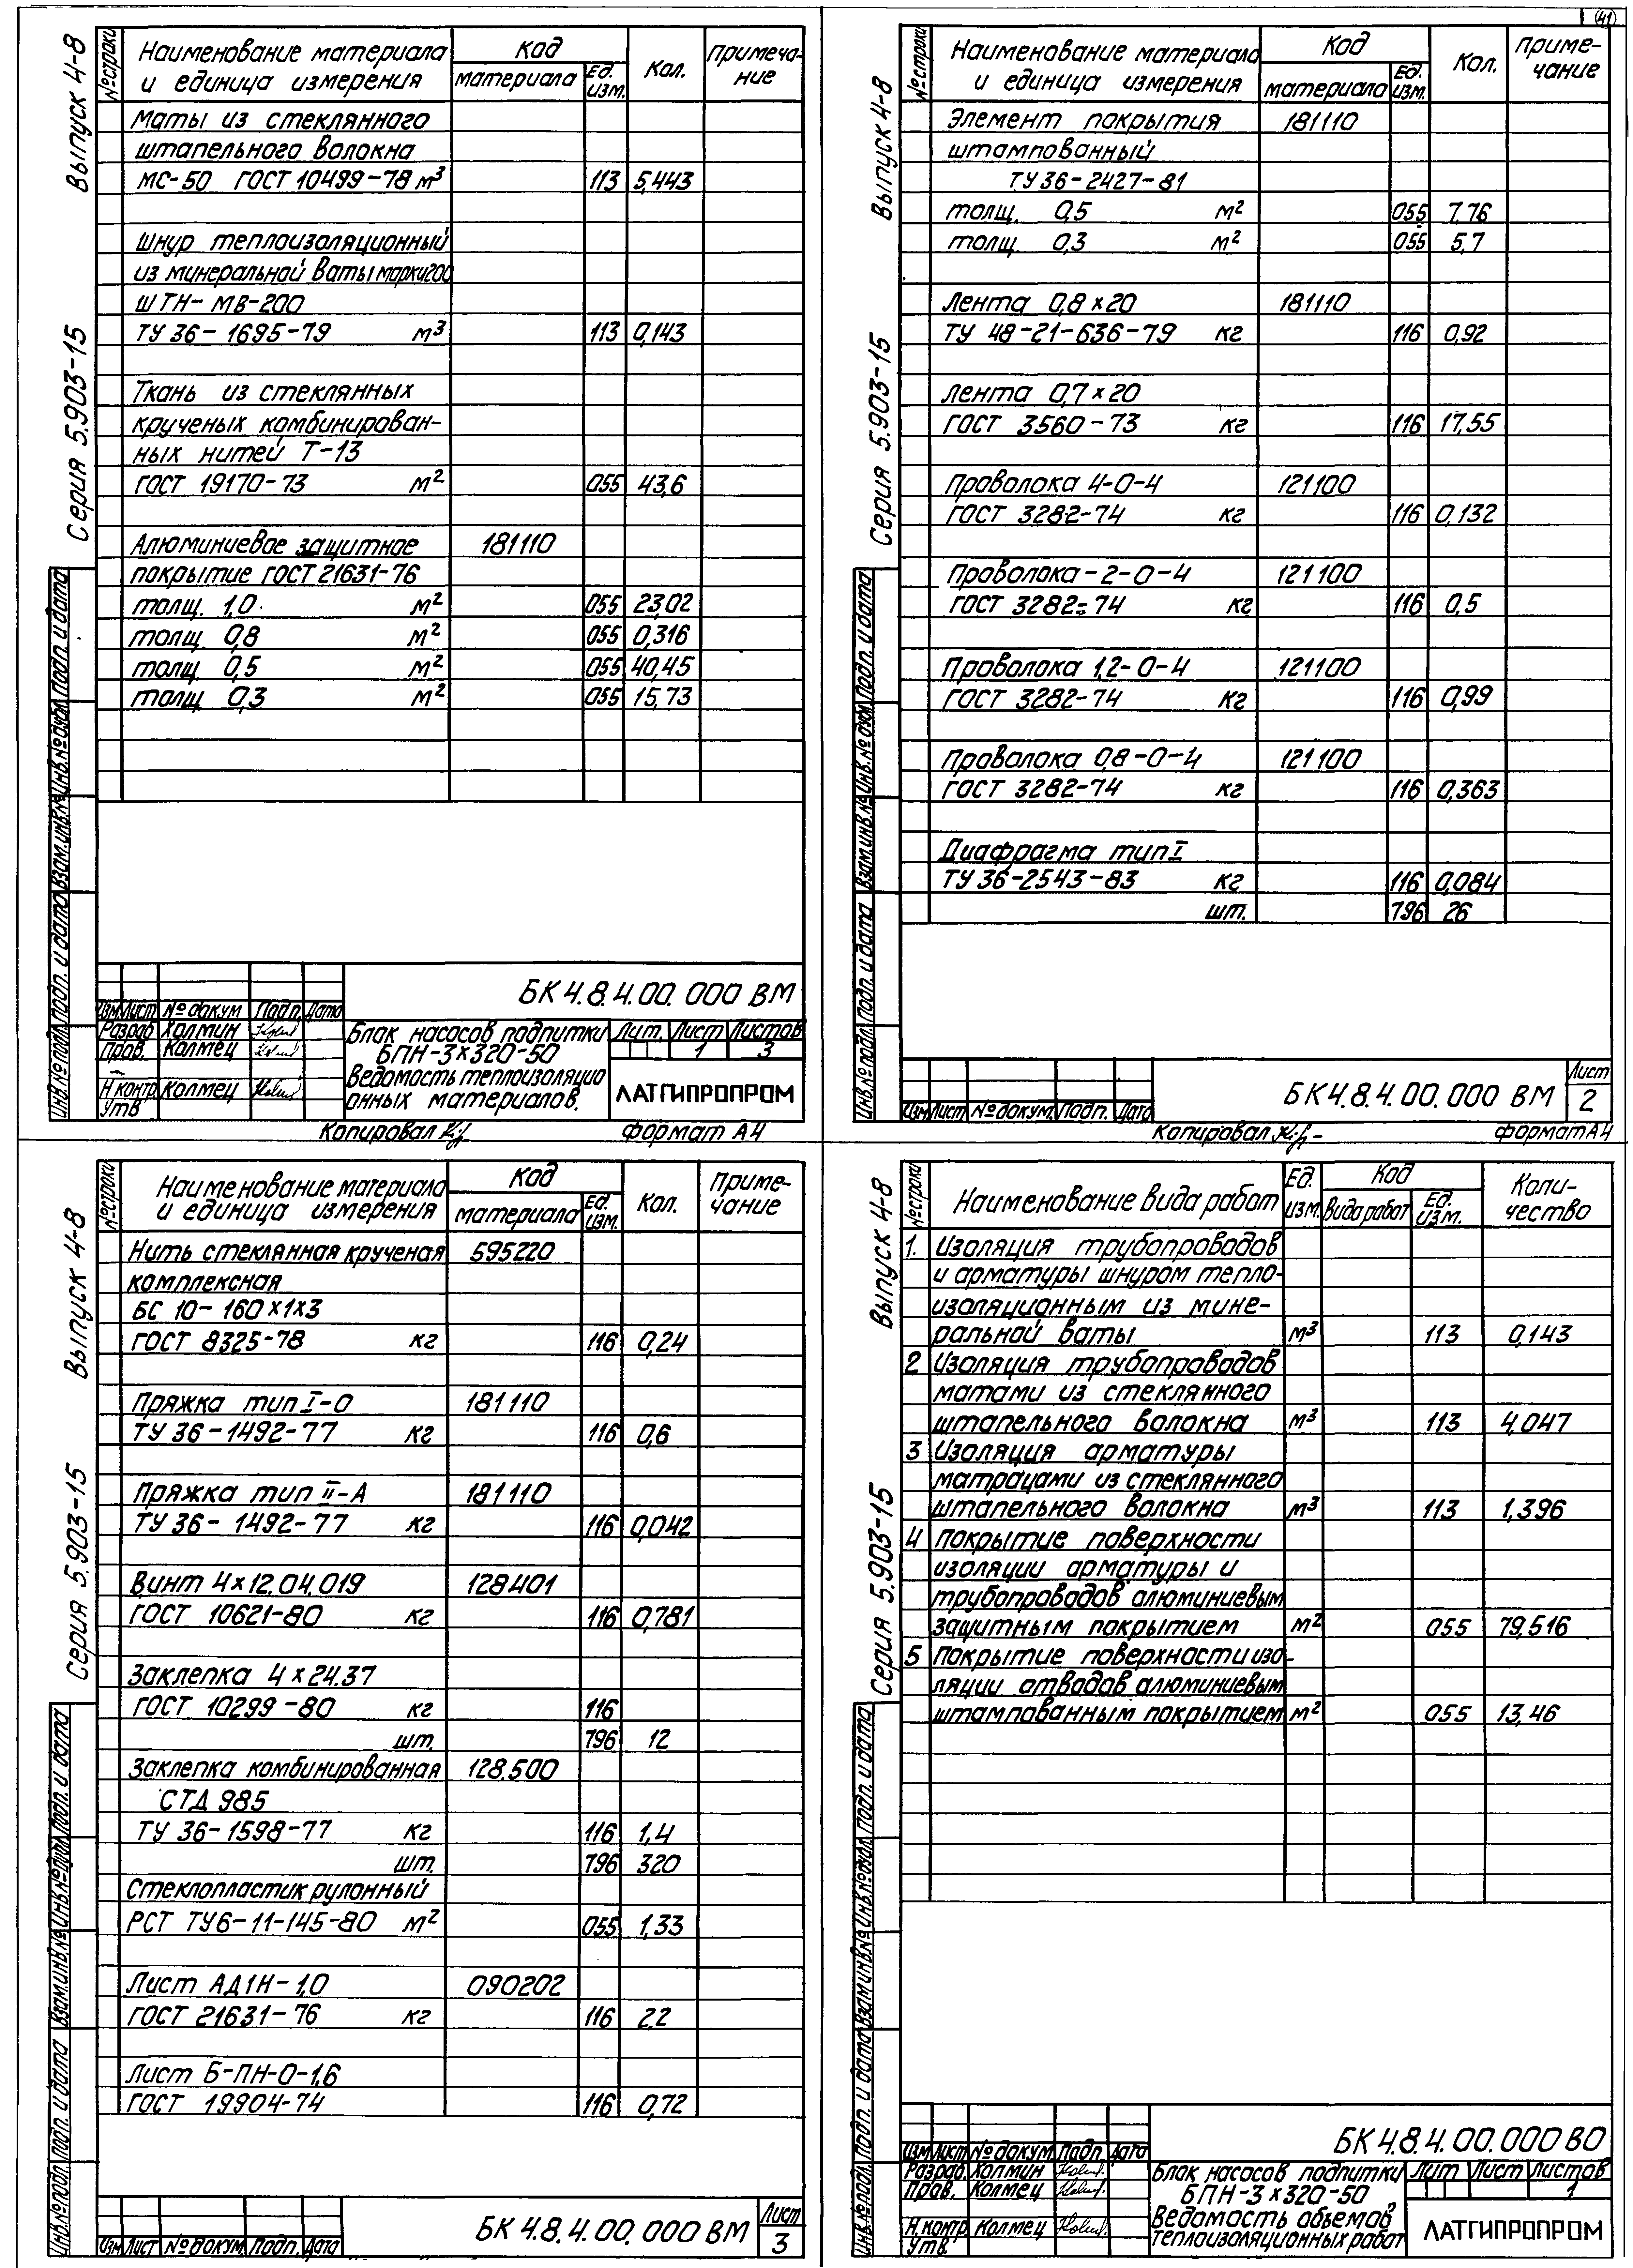 41
Выпуск 4-8
Серия 5.903-15
№ строки
Наименование материала и единица измерения
Код
материала
Ед. изм.
Кол.
Примечание
Маты из стеклянного
штапельного волокна
МС-50 ГОСТ 10499-78 м³ 113 5,443
Шнур теплоизоляционный
из минеральной ваты марки 200
ШТН-МВ-200
ТУ 36-1695-79 м³ 113 0,143
Ткань из стеклянных
крученых комбинирован-
ных нитей Т-13
ГОСТ 19170-73 м² 055 43,6
Алюминиевое защитное 181110
покрытие ГОСТ 21631-76
толщ. 1,0 м² 055 23,02
толщ. 0,8 м² 055 0,316
толщ. 0,5 м² 055 40,45
толщ. 0,3 м² 055 15,73
Инв.№ подл. Подп. и дата Взам.инв.№ Инв.№ дубл. Подп. и дата
БК 4.8.4.00.000 ВМ
Изм Лист № докум Подп. Дата
Разраб Холмин
Пров. Колмец
Н контр Колмец
Утв
Блок насосов подпитки
БПН-3×320-50
Ведомость теплоизоляцио
онных материалов.
Лит. Лист Листов
1 3
ЛАТГИПРОПРОМ
Копировал
Формат А4
Выпуск 4-8
Серия 5.903-15
№ строки
Наименование материала и единица измерения
Код
материала
Ед. изм.
Кол.
Приме-
чание
Элемент покрытия 181110
штампованный
ТУ 36-2427-81
толщ. 0,5 м² 055 7,76
толщ. 0,3 м² 055 5,7
Лента 0,8×20 181110
ТУ 48-21-636-79 кг 116 0,92
Лента 0,7×20
ГОСТ 3560-73 кг 116 17,55
Проволока 4-0-4 121100
ГОСТ 3282-74 кг 116 0,132
Проволока-2-0-4 121100
ГОСТ 3282-74 кг 116 0,5
Проволока 1,2-0-4 121100
ГОСТ 3282-74 кг 116 0,99
Проволока 0,8-0-4 121100
ГОСТ 3282-74 кг 116 0,363
Диафрагма тип I
ТУ 36-2543-83 кг 116 0,084
шт. 796 26
Инв.№ подл. Подп. и дата Взам.инв.№ Инв.№ дубл. Подп. и дата
Изм Лист № докум. Подп. Дата
БК 4.8.4.00.000 ВМ
Лист
2
Копировал
Формат А4
Выпуск 4-8
Серия 5.903-15
№ строки
Наименование материала и единица измерения
Код
материала
Ед. изм.
Кол.
Приме-
чание
Нить стеклянная крученая 595220
комплексная
БС 10-160×1×3
ГОСТ 8325-78 кг 116 0,24
Пряжка тип I-0 181110
ТУ 36-1492-77 кг 116 0,6
Пряжка тип II-А 181110
ТУ 36-1492-77 кг 116 0,042
Винт 4×12.04.019 128401
ГОСТ 10621-80 кг 116 0,781
Заклепка 4×24.37
ГОСТ 10299-80 кг 116
шт. 796 12
Заклепка комбинированная 128.500
СТД 985
ТУ 36-1598-77 кг 116 1,4
шт. 796 320
Стеклопластик рулонный
РСТ ТУ6-11-145-80 м² 055 1,33
Лист АД1Н-1,0 090202
ГОСТ 21631-76 кг 116 2,2
Лист Б-ПН-0-1,6
ГОСТ 19904-74 116 0,72
Инв.№ подл. Подп. и дата Взам.инв.№ Инв.№ дубл. Подп. и дата
Изм Лист № докум. Подп. Дата
БК 4.8.4.00.000 ВМ
Лист
3
Выпуск 4-8
Серия 5.903-15
№ строки
Наименование вида работ
Ед. изм.
Код
Вида работ
Ед. изм.
Коли-
чество
1. Изоляция трубопроводов
и арматуры шнуром тепло-
изоляционным из мине-
ральной ваты м³ 113 0,143
2 Изоляция трубопроводов
матами из стеклянного
штапельного волокна м³ 113 4,047
3 Изоляция арматуры
матрацами из стеклянного
штапельного волокна м³ 113 1,396
4 Покрытие поверхности
изоляции арматуры и
трубопроводов алюминиевым
защитным покрытием м² 055 79,516
5 Покрытие поверхности изо-
ляции отводов алюминиевым
штампованным покрытием м² 055 13,46
Инв.№ подл. Подп. и дата Взам инв.№ Инв.№ дубл. Подп. и дата
БК 4.8.4.00.000 ВО
Изм Лист № докум. Подп. Дата
Разраб. Колмин
Пров. Колмец
Н.контр Колмец
Утв.
Блок насосов подпитки
БПН-3×320-50
Ведомость объемов
теплоизоляционных работ
Лит Лист Листов
1
ЛАТГИПРОПРОМ